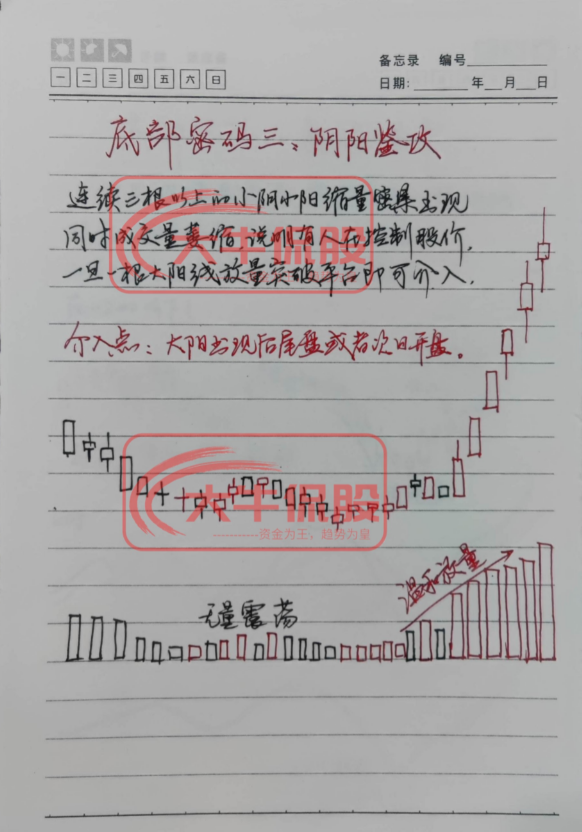 备忘录 编号
一 二 三 四 五 六 日
日期: 年 月 日
底部密码三：阴阳鉴政
连续三根以上的小阴小阳缩量密集出现
同时成交量萎缩，说明有人在控制股价，
一旦一根大阳线放量突破平台即可介入。
介入点：大阳出现后尾盘或者次日开盘。
大牛保股
大牛保股
资金为王，趋势为皇
温和放量
无量震荡